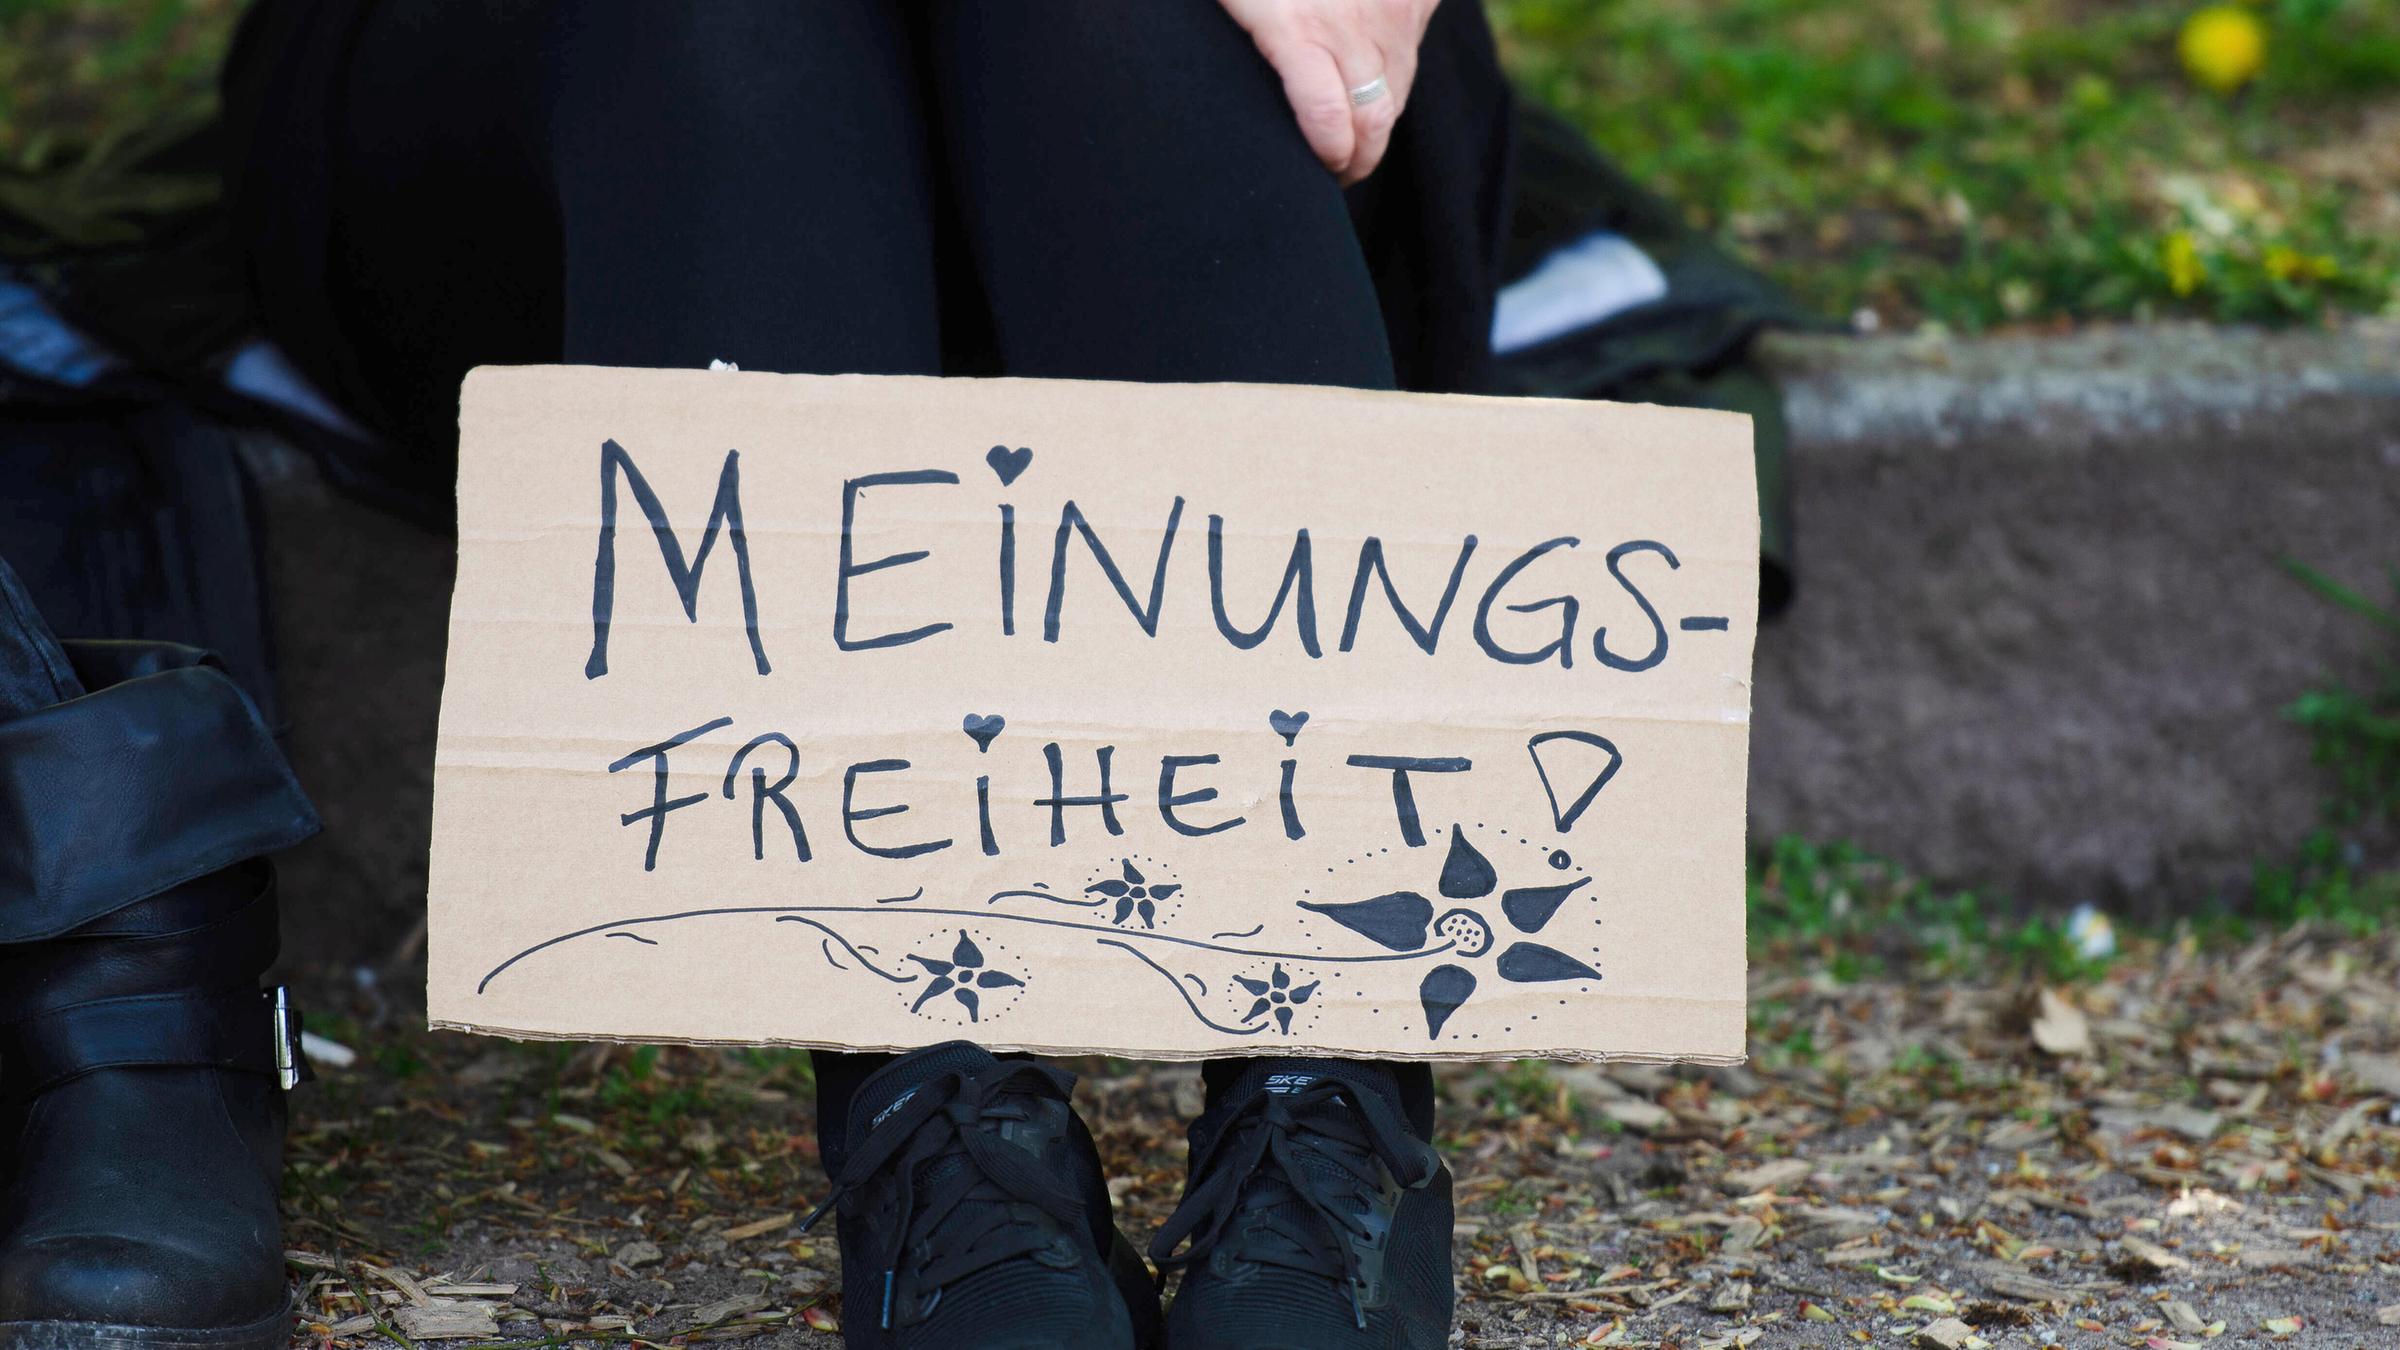 MEiNUNGS-
FREiHEiT!
SKE